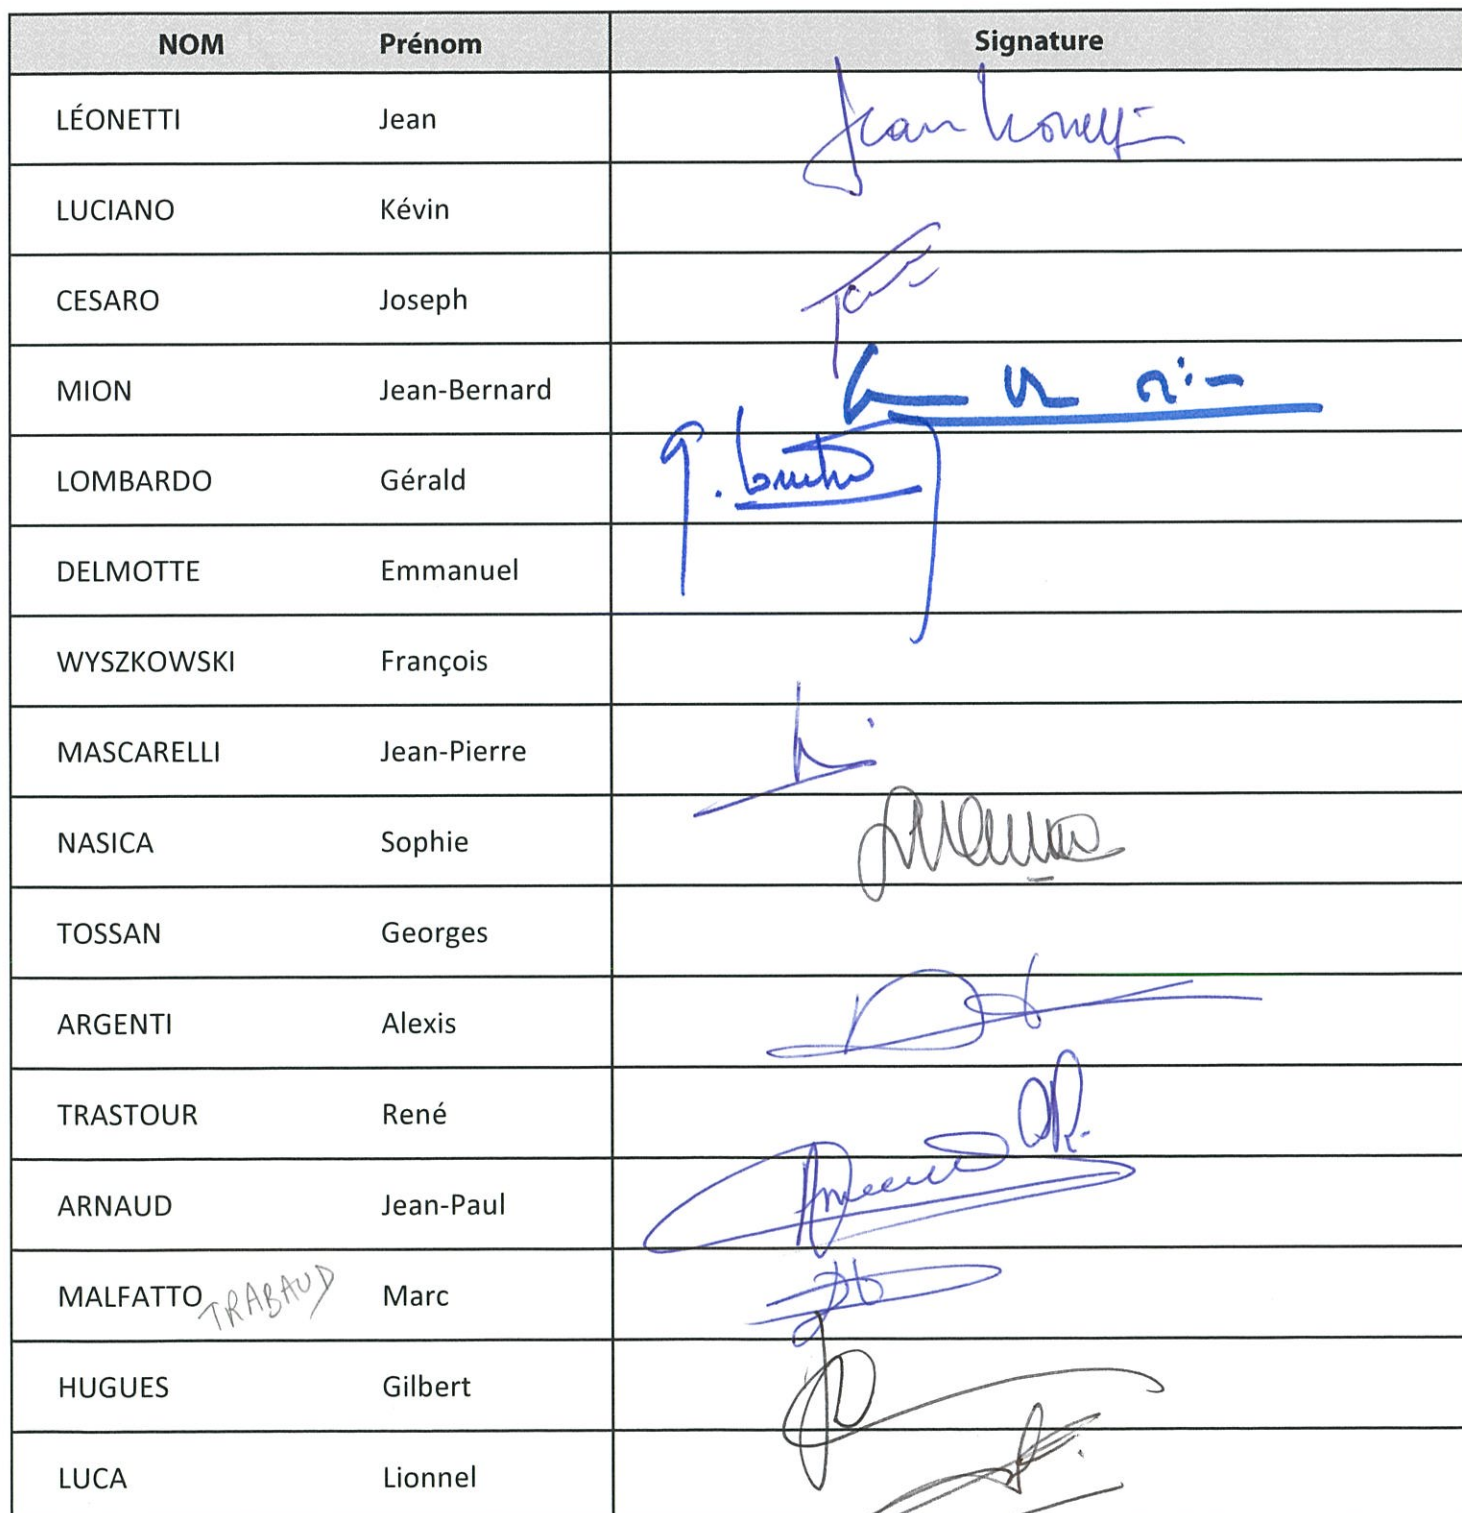 NOM Prénom Signature
LÉONETTI Jean Jean Leonetti
LUCIANO Kévin
CESARO Joseph
MION Jean-Bernard
LOMBARDO Gérald G. Lombardo
DELMOTTE Emmanuel
WYSZKOWSKI François
MASCARELLI Jean-Pierre
NASICA Sophie
TOSSAN Georges
ARGENTI Alexis
TRASTOUR René
ARNAUD Jean-Paul
MALFATTO TRABAUD Marc
HUGUES Gilbert
LUCA Lionnel